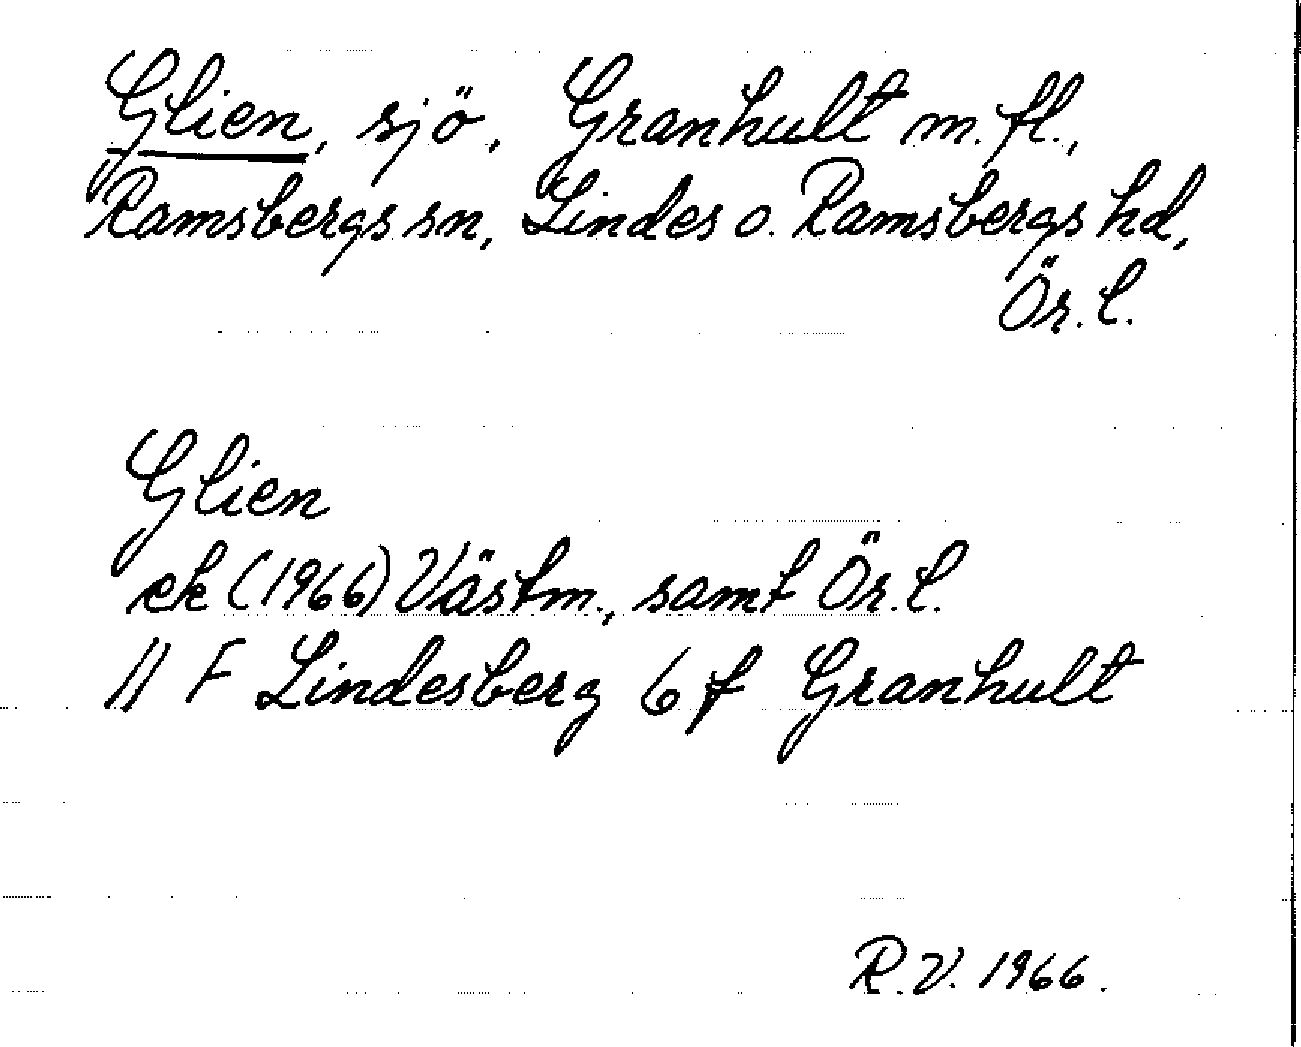 Glien, sjö, Granhult m.fl.,
Ramsbergs sn, Lindes o. Ramsbergs hd,
Ör.l.
Glien
ek (1966) Västm., samt Ör.l.
11 F Lindesberg 6 f Granhult
R.V. 1966.